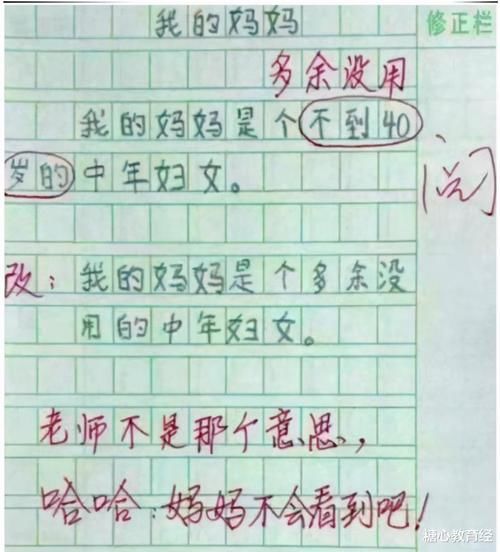 我的妈妈
修正栏
多余没用
我的妈妈是个不到40
岁的中年妇女。
阅
改：我的妈妈是个多余没
用的中年妇女。
老师不是那个意思，
哈哈：妈妈不会看到吧！
糖心教育经